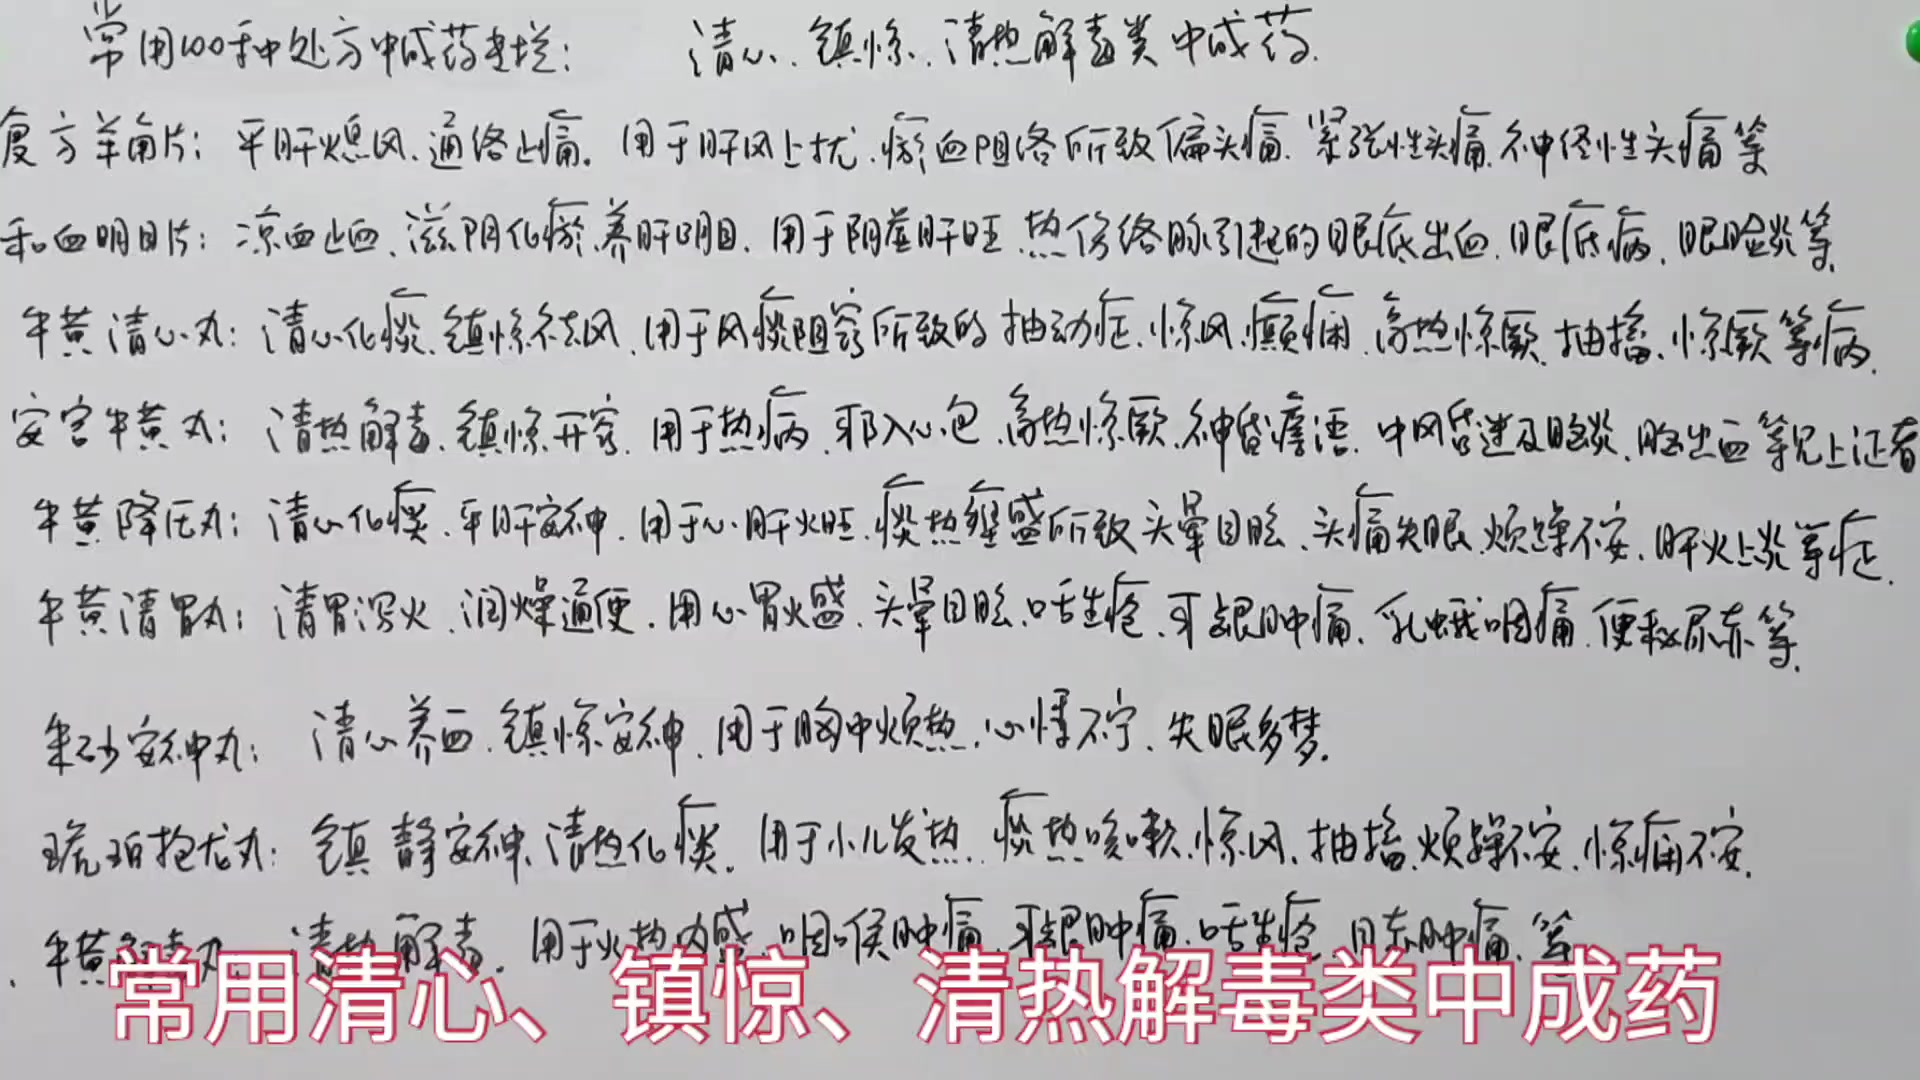 常用100种中处方中成药专栏： 清心、镇惊、清热解毒类中成药.
复方羊角片：平肝熄风、通络止痛。用于肝风上扰、瘀血阻络所致偏头痛、紧张性头痛、神经性头痛等
和血明目片：凉血止血、滋阴化瘀、养肝明目、用于阴虚肝旺、热伤络脉引起的眼底出血、眼底病、眼睑炎等.
牛黄清心丸：清心化痰、镇惊祛风、用于风痰阻窍所致的抽动症、惊风、癫痫、高热惊厥、抽搐、惊厥等病.
安宫牛黄丸：清热解毒、镇惊开窍、用于热病、邪入心包、高热惊厥、神昏谵语、中风昏迷及脑炎、脑出血等见上证者
牛黄降压丸：清心化痰、平肝安神、用于心肝火旺、痰热壅盛所致头晕目眩、头痛失眠、烦躁不安、肝火上炎等症.
牛黄清胃丸：清胃泻火、润燥通便、用心胃火盛、头晕目眩、口舌生疮、牙龈肿痛、乳蛾咽痛、便秘尿赤等.
朱砂安神丸： 清心养血、镇惊安神、用于胸中烦热、心悸不宁、失眠多梦.
琥珀抱龙丸：镇静安神、清热化痰、用于小儿发热、痰热咳嗽、惊风、抽搐、烦躁不安、惊痫不安.
牛黄解毒丸 清热解毒、用于火热内盛、咽喉肿痛、牙龈肿痛、口舌生疮、目赤肿痛、等
常用清心、镇惊、清热解毒类中成药